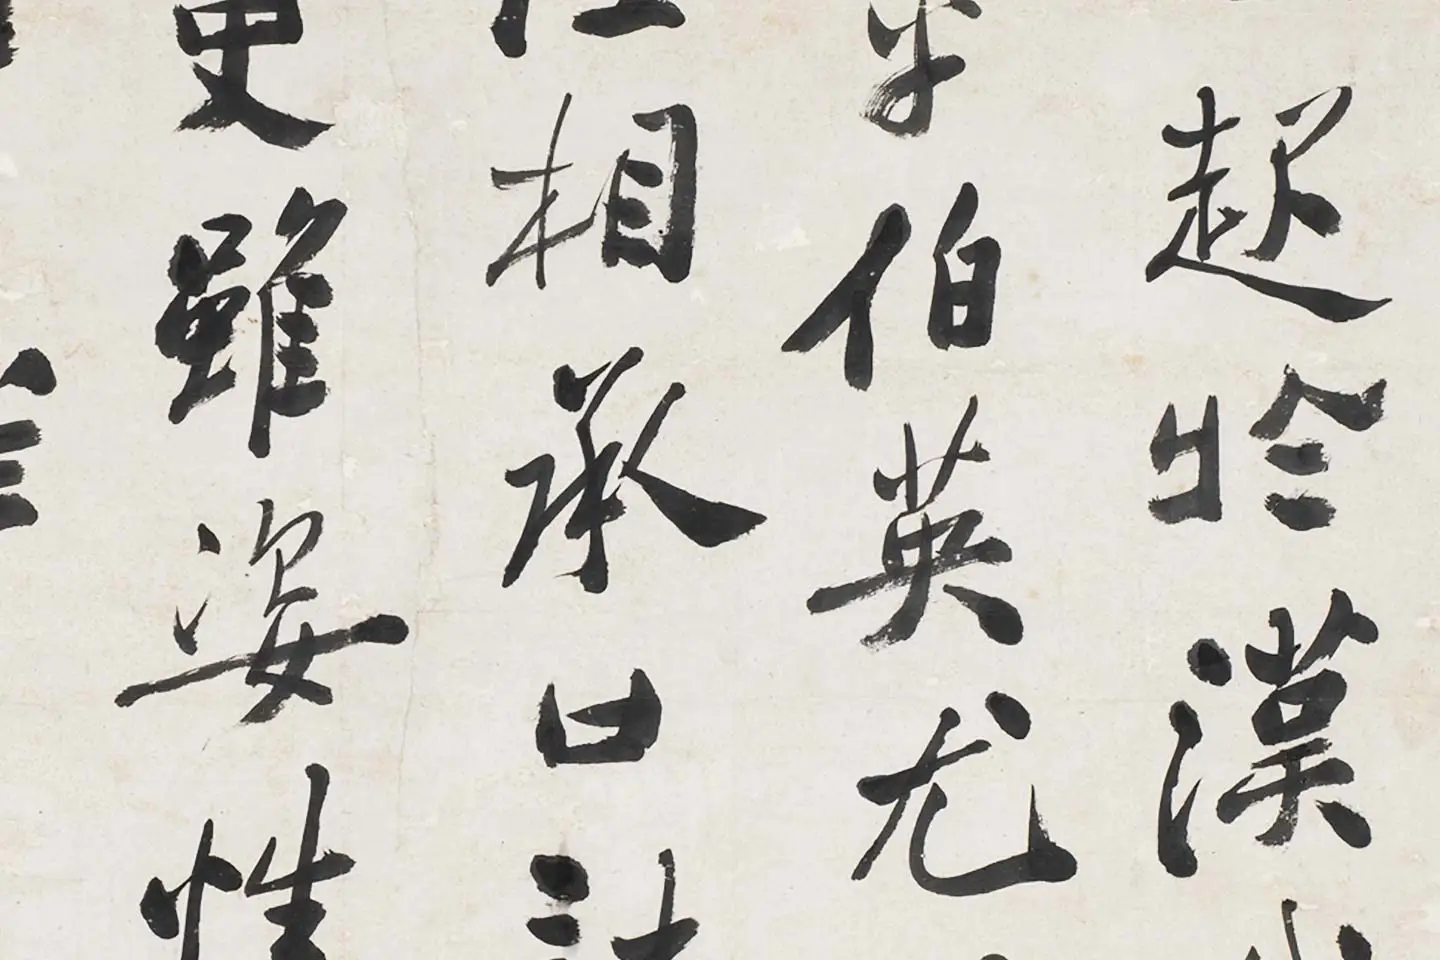 起於漢
伯英尤
相承口訣
史雖姿性